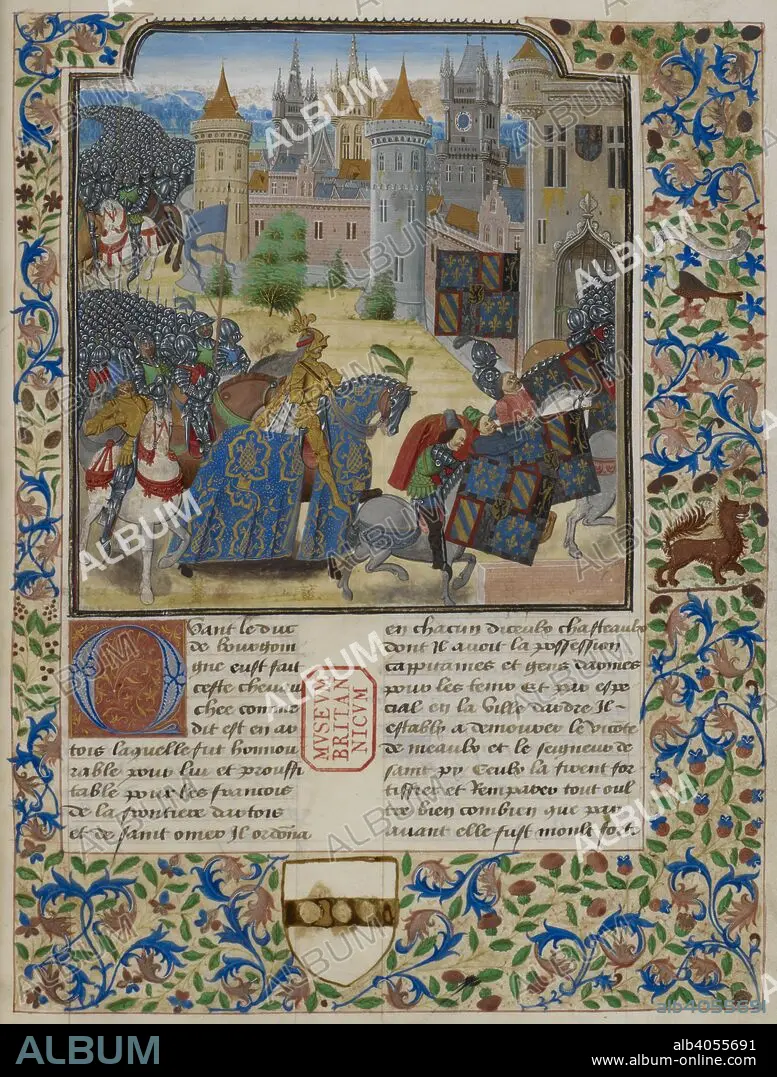 Quant le duc
de bourgoin
gne eust fait
ceste chevau
chee comme
dit est en ar
tois laquelle fut honnou
rable pour lui et prouffi
table pour les francois
de la frontiere dartois
et de saint omer Il ordonna
en chacun diceulx chasteaulx
dont Il avoit la possession
cappitaines et gens darmes
pour les temo Et par espe
cial en la ville dardre Il
establi a demourer le viconte
de meaulx et le seigneur de
saint py Ceulx la firent for
tiffier et Remparer tout oul
tre bien combien que par
avant elle fust moult fort
MVSEVM
BRITAN
NICVM
ALBUM
ALBUM
alb4055691
alb4055691
www.album-online.com